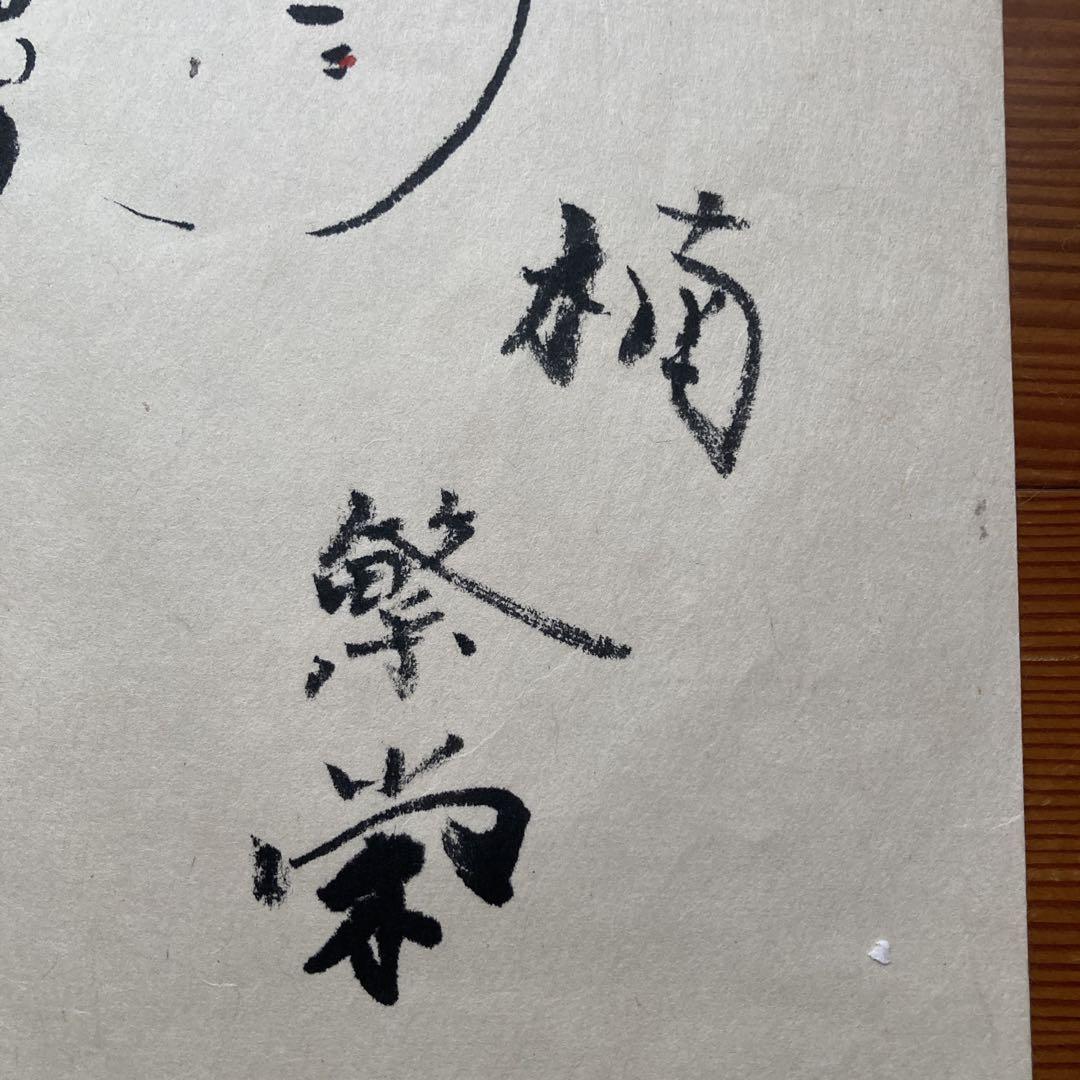 楠
繁栄